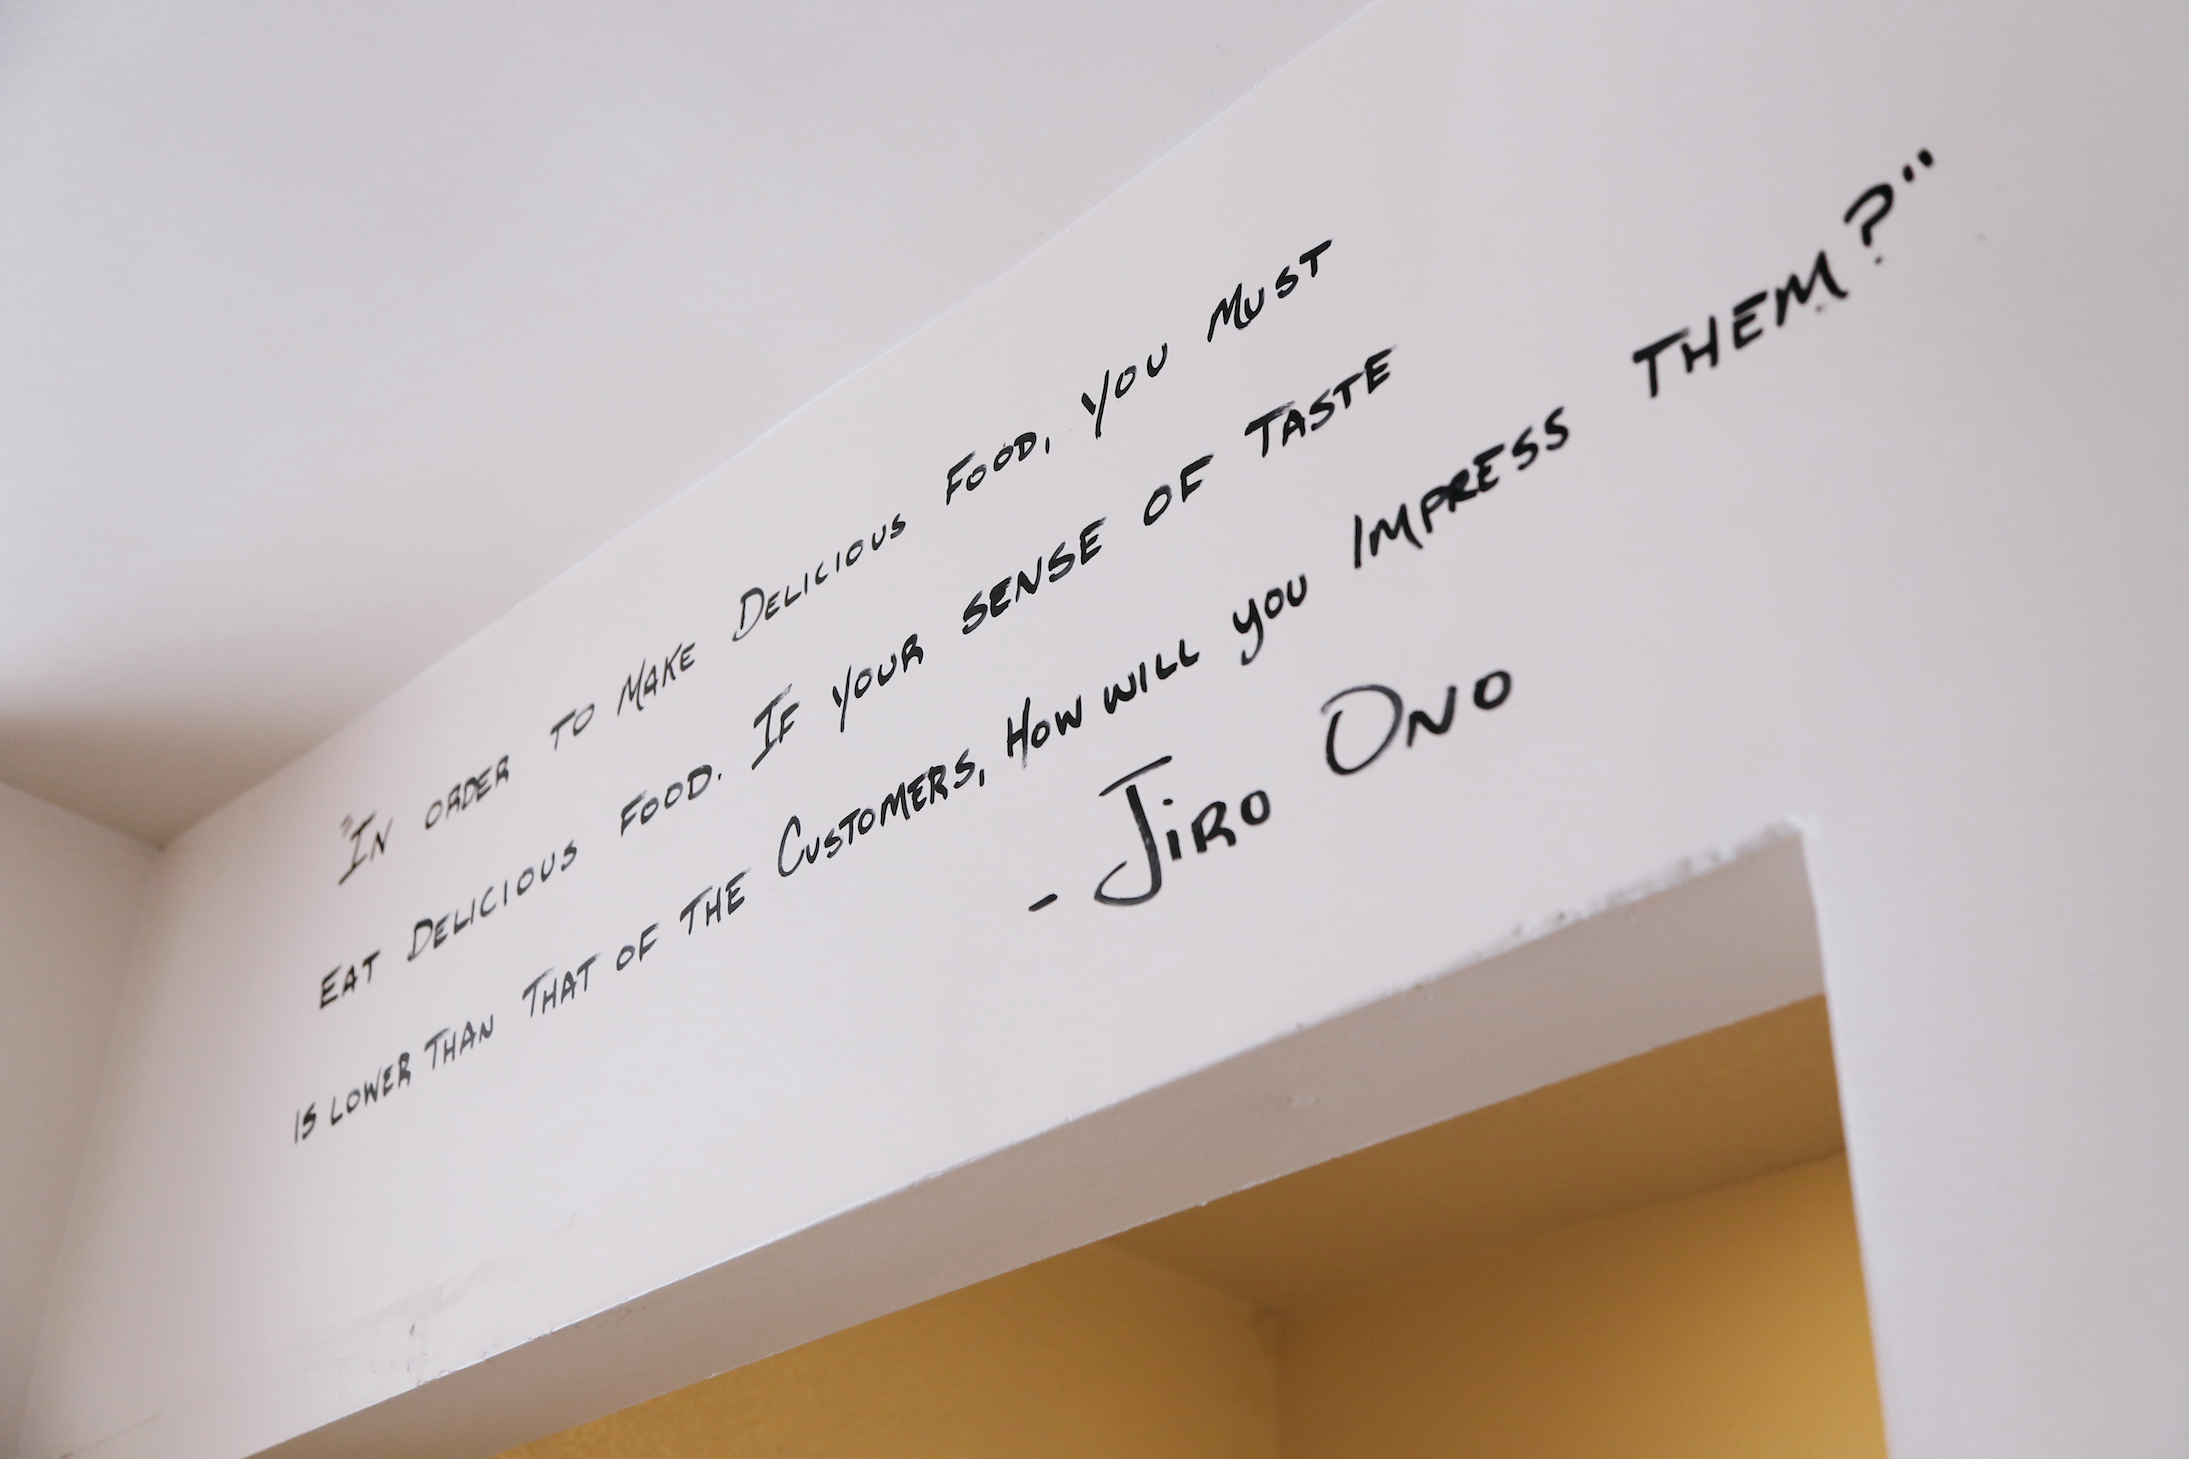 "In order to Make Delicious Food, you Must
Eat Delicious Food. If your sense of Taste
is lower than that of the Customers, How will you Impress them?"
- Jiro Ono